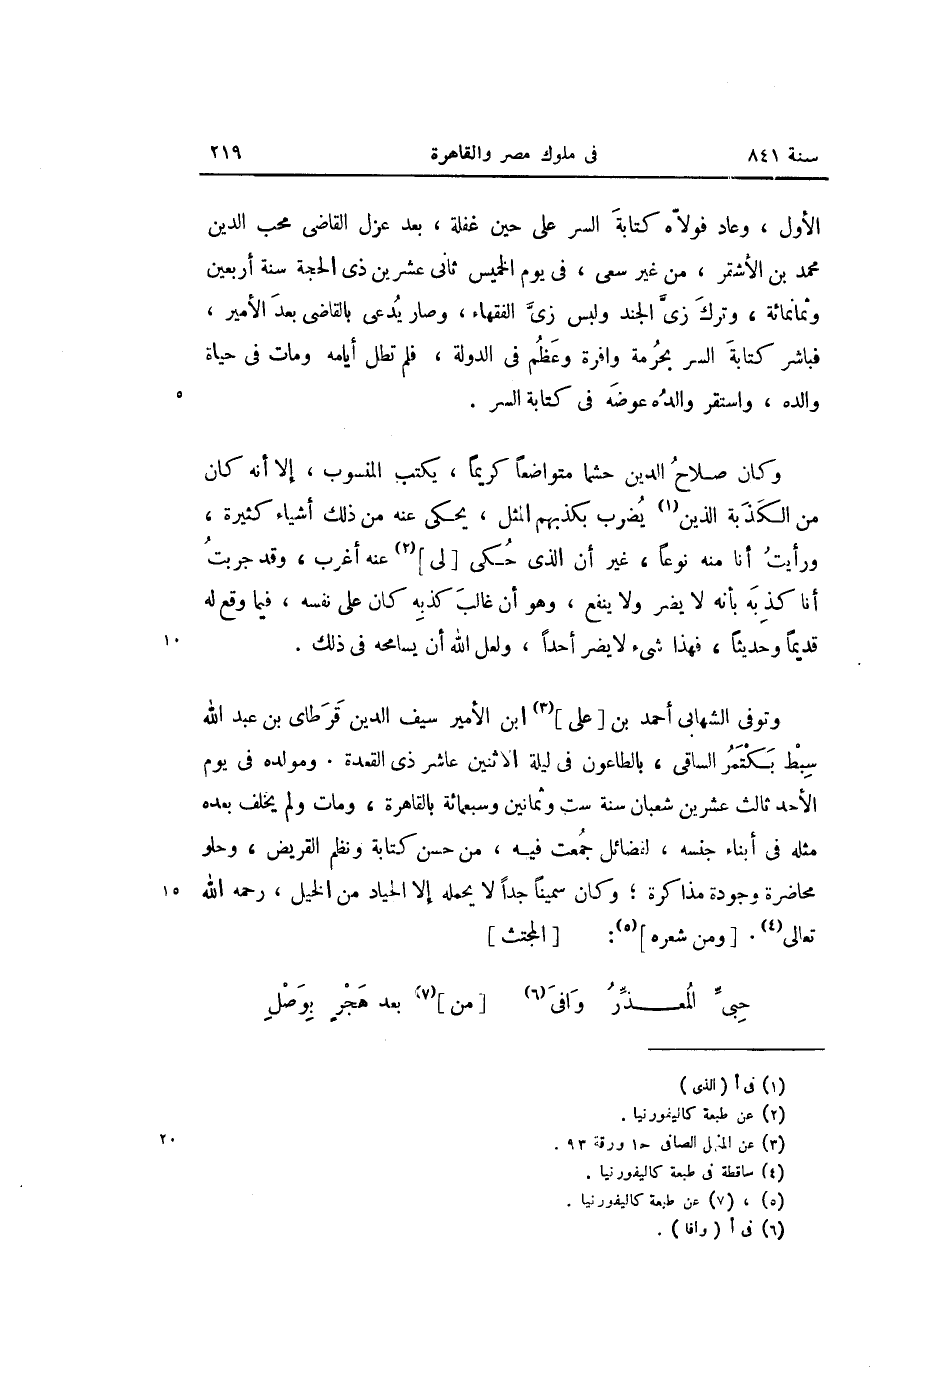 سنة ٨٤١ فى ملوك مصر والقاهرة ٢١٩
الأول ، وعاد فولاّه كتابةَ السر على حين غفلة ، بعد عزل القاضى محب الدين
محمد بن الأشقر ، من غير سعى ، فى يوم الخميس ثانى عشرين ذى الحجة سنة أربعين
وثمانمائة ، وتركَ زىَّ الجند ولبس زىَّ الفقهاء ، وصار يُدعى بالقاضى بعدَ الأمير ،
فباشر كتابةَ السر بحرُمة وافرة وعَظُم فى الدولة ، فلم تطل أيامه ومات فى حياة
والده ، واستقر والدُه عوضَه فى كتابة السر . ٥
وكان صلاحُ الدين حشما متواضعاً كريماً ، يكتب المنسوب ، إلا أنه كان
من الكَذَبة الذين(١) يُضرب بكذبهم المثل ، يحكى عنه من ذلك أشياء كثيرة ،
ورأيتُ أنا منه نوعاً ، غير أن الذى حُكى [ لى ](٢) عنه أغرب ، وقد جربتُ
أنا كذبَه بأنه لا يضر ولا ينفع ، وهو أن غالبَ كذبِه كان على نفسه ، فيما وقع له
قديماً وحديثاً ، فهذا شىء لايضر أحداً ، ولعل الله أن يسامحه فى ذلك . ١٠
وتوفى الشهابى أحمد بن [ على ](٣) ابن الأمير سيف الدين قَرَطاى بن عبد الله
سِبْط بَكْتَمُر الساقى ، بالطاعون فى ليلة الاثنين عاشر ذى القعدة . ومولده فى يوم
الأحد ثالث عشرين شعبان سنة ست وثمانين وسبعمائة بالقاهرة ، ومات ولم يخلف بعده
مثله فى أبناء جنسه ، لفضائل جُمعت فيه ، من حسن كتابة ونظم القريض ، وحلو
محاضرة وجودة مذاكرة ؛ وكان سميناً جداً لا يحمله إلا الجياد من الخيل ، رحمه الله ١٥
تعالى(٤) . [ ومن شعره ](٥): [ المجتث ]
حِبىِّ المُعـــذَّرُ وَافىَ(٦) [ من ](٧) بعد هَجْرٍ بِوَصْلٍ
(١) فى أ ( الذى )
(٢) عن طبعة كاليفورنيا .
(٣) عن المنهل الصافى حـ١ ورقة ٩٣ . ٢٠
(٤) ساقطة فى طبعة كاليفورنيا .
(٥) ، (٧) عن طبعة كاليفورنيا .
(٦) فى أ ( وافا ) .